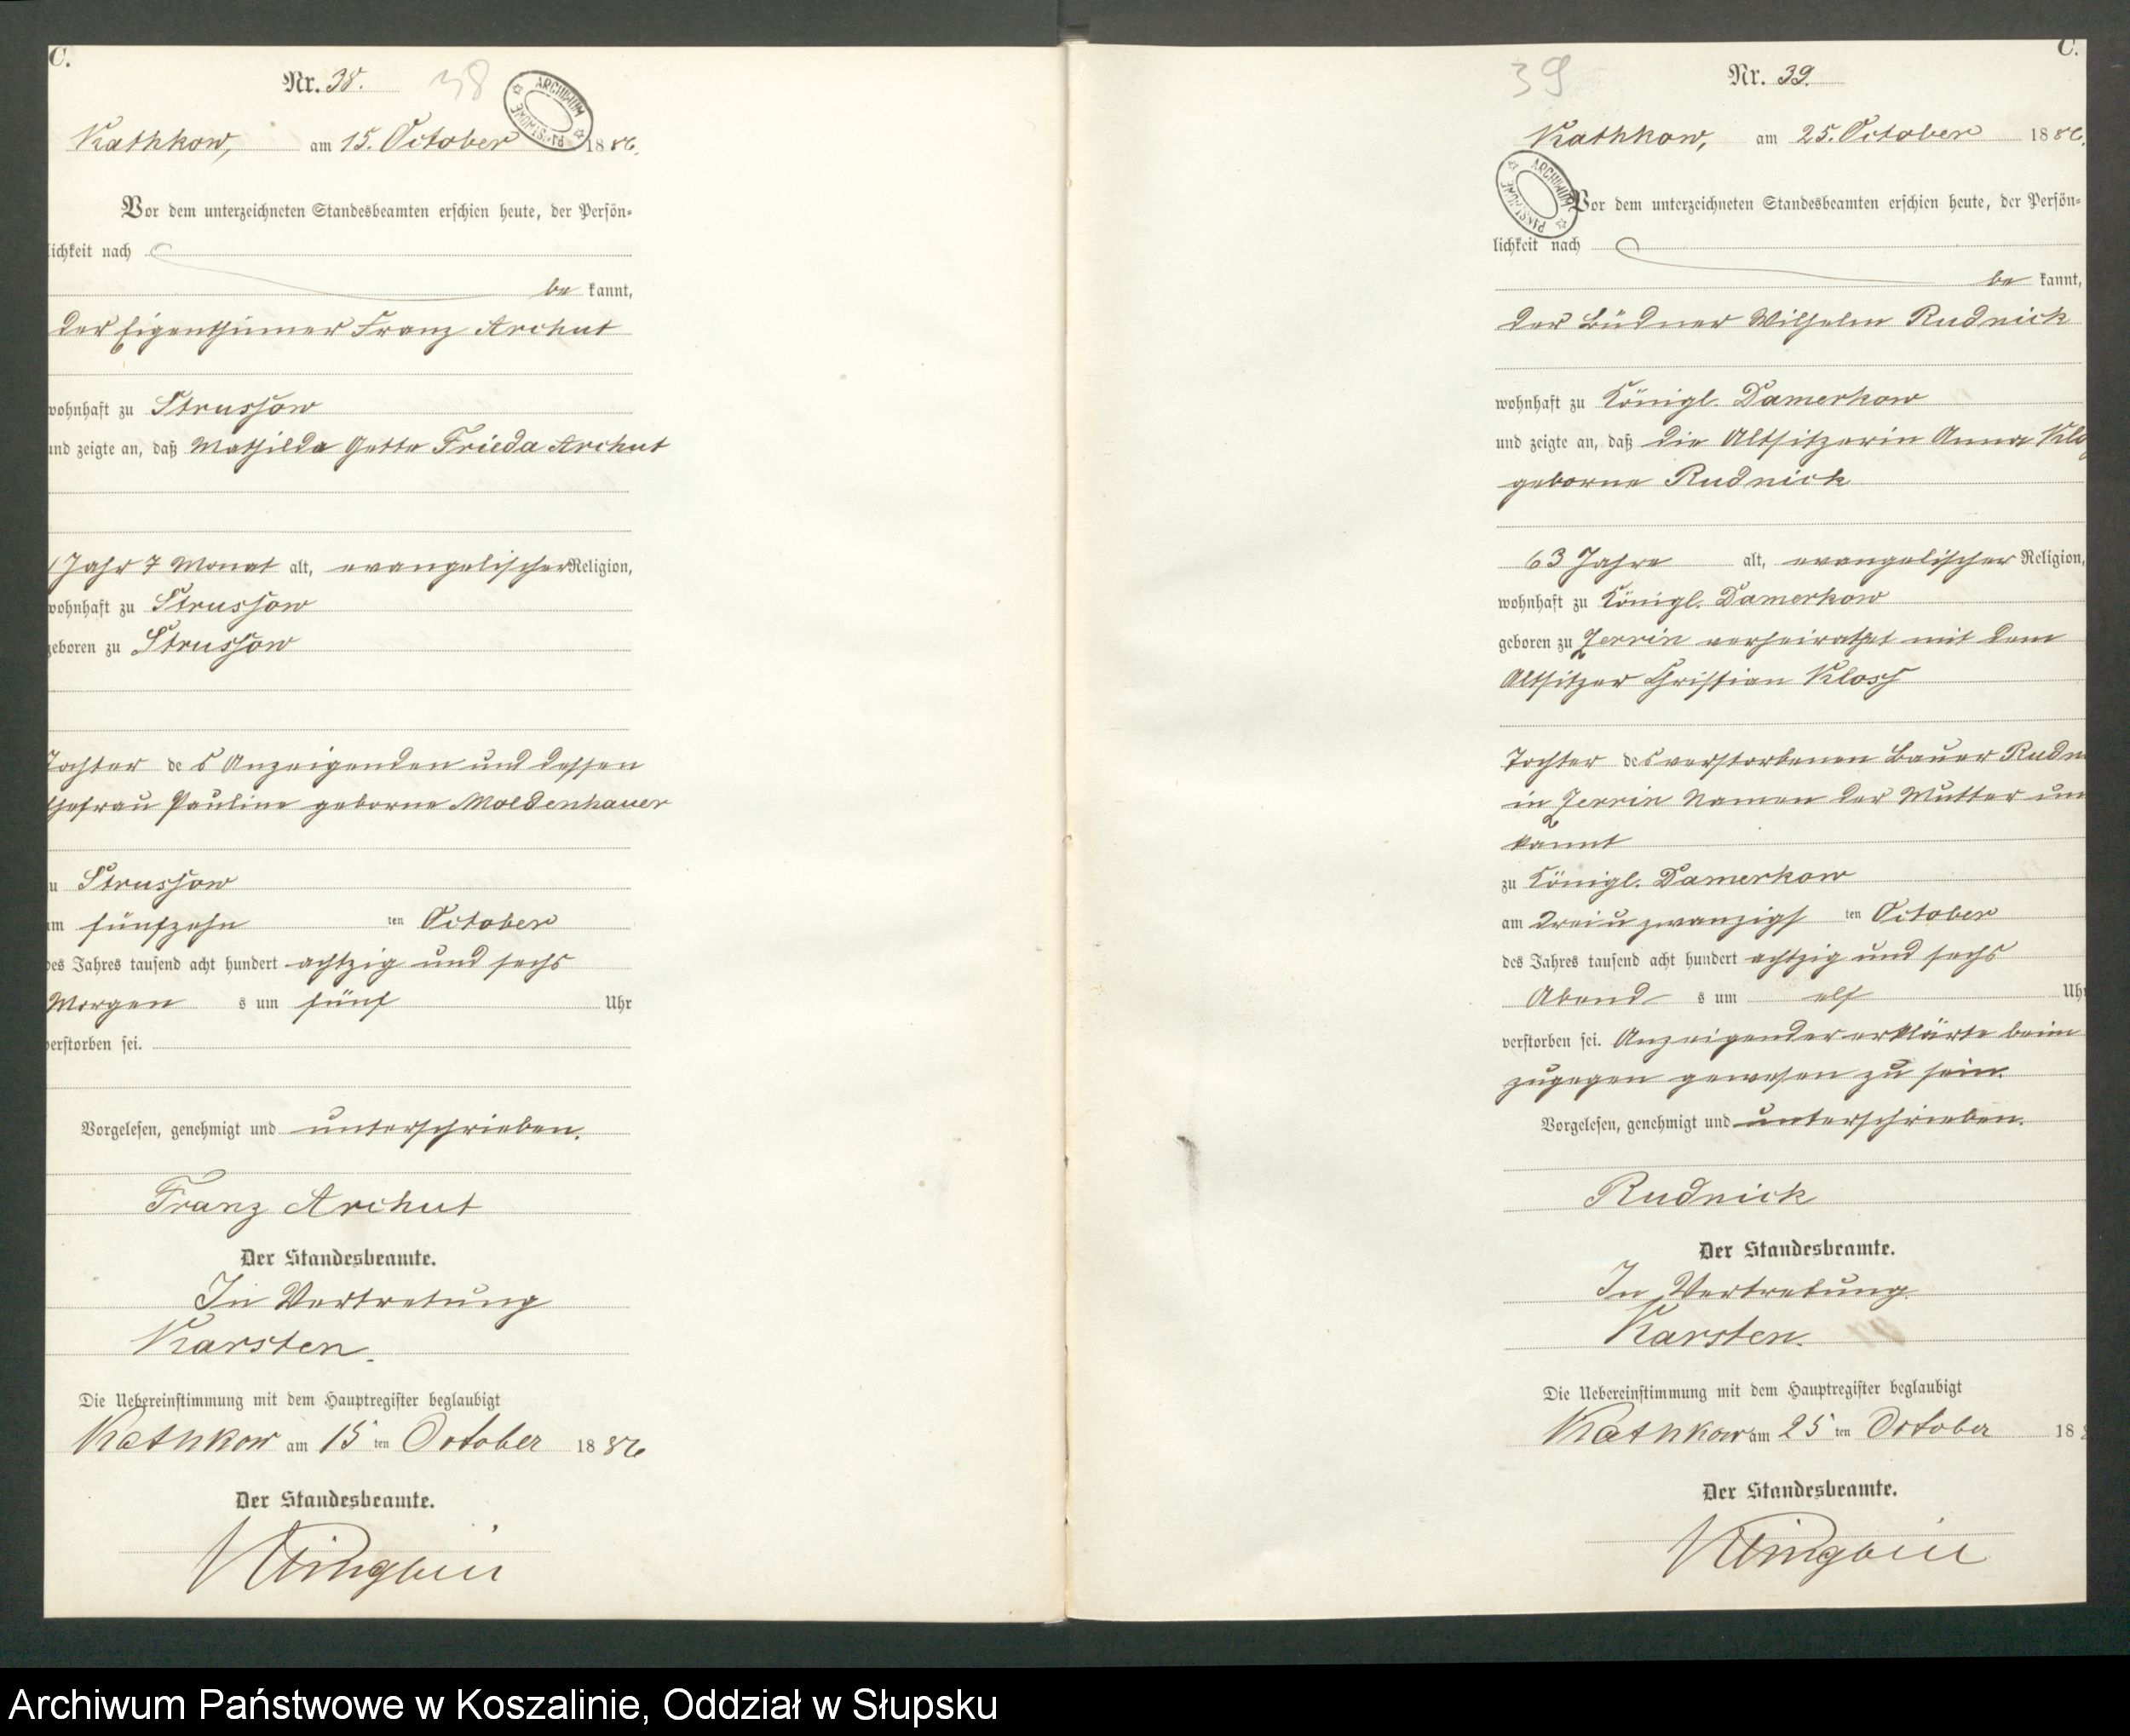 C.
Nr. 38. 38
ARCHIWUM PAŃSTWOWE
Kathkow, am 15. October 1886.
Vor dem unterzeichneten Standesbeamten erschien heute, der Persön-
lichkeit nach
be kannt,
der Eigenthümer Franz Archut
wohnhaft zu Strussow
und zeigte an, daß Mathilda Frieda Archut
1 Jahr 7 Monat alt, evangelischer Religion,
wohnhaft zu Strussow
geboren zu Strussow
Tochter des Anzeigenden und dessen
Ehefrau Pauline geborne Moldenhauer
zu Strussow
am fünfzehn ten October
des Jahres tausend acht hundert achtzig und sechs
Morgen s um fünf Uhr
verstorben sei.
Vorgelesen, genehmigt und unterschrieben.
Franz Archut
Der Standesbeamte.
In Vertretung
Karsten.
Die Uebereinstimmung mit dem Hauptregister beglaubigt
Kathkow am 15 ten October 1886
Der Standesbeamte.
C.
39 Nr. 39.
Kathkow, am 25. October 1886.
ARCHIWUM PAŃSTWOWE
Vor dem unterzeichneten Standesbeamten erschien heute, der Persön-
lichkeit nach
be kannt,
der Büdner Wilhelm Rudnick
wohnhaft zu Königl. Damerkow
und zeigte an, daß die Altsitzerin Anna Klo
geborne Rudnick
63 Jahre alt, evangelischer Religion,
wohnhaft zu Königl. Damerkow
geboren zu Jerrin verheirathet mit dem
Altsitzer Christian Kloss
Tochter des verstorbenen Bauer Rudn
in Jerrin Namen der Mutter un
kannt
zu Königl. Damerkow
am drei u zwanzigs ten October
des Jahres tausend acht hundert achtzig und sechs
Abend s um elf Uhr
verstorben sei. Anzeigender erklärte beim
zugegen gewesen zu sein.
Vorgelesen, genehmigt und unterschrieben.
Rudnick
Der Standesbeamte.
In Vertretung
Karsten.
Die Uebereinstimmung mit dem Hauptregister beglaubigt
Kathkow am 25 ten October 18
Der Standesbeamte.
Archiwum Państwowe w Koszalinie, Oddział w Słupsku